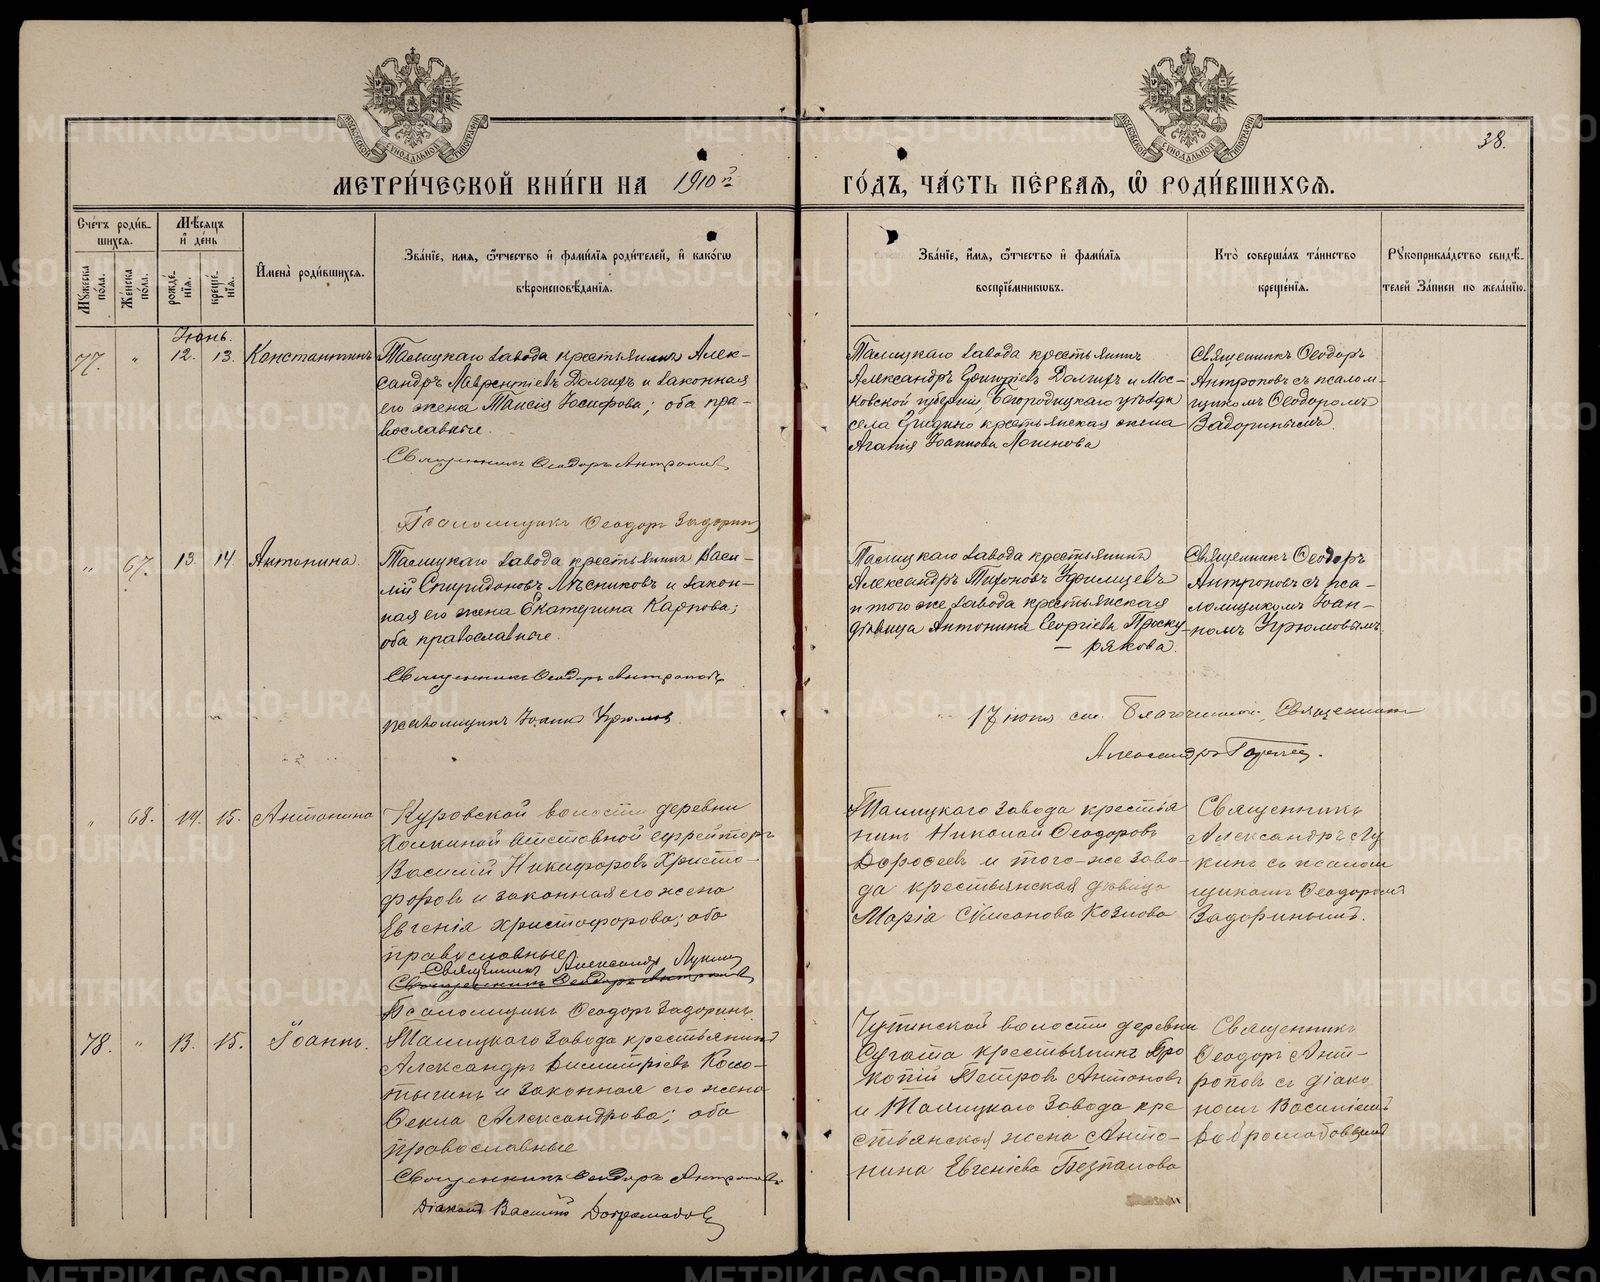 МЕТРИ́ЧЕСКОЙ КНИ́ГИ НА 1910й
ГО́ДЪ, ЧА́СТЬ ПЕ́РВАЯ, Ѡ РОДИ́ВШИХСЯ.
38.
Сче́тъ роди́в-
шихся.
Му́жеска по́ла.
Же́нска по́ла.
Мѣ́сяцъ
и҆ де́нь
рожде́нїя.
креще́нїя.
И҆мена̀ роди́вшихся.
Зва́нїе, и́мя, ѻ҆́тчество и҆ фами́лїя роди́телей, и҆ како́гѡ
вѣроисповѣ́данїя.
Зва́нїе, и҆́мя, ѻ҆́тчество и҆ фами́лїя
воспрїе́мникѡвъ.
Кто̀ соверша́лъ та́инство
креще́нїя.
Рꙋкоприкла́дство свидѣ́-
телей за́писи по жела́нїю.
Іюнь.
77. " 12. 13. Константинъ
Талицкаго завода крестьянинъ Алек-
сандръ Лаврентіевъ Долгихъ и законная
его жена Таисія Іосифова; оба пра-
вославные.
Священникъ Ѳеодоръ Антроповъ
Псаломщикъ Ѳеодоръ Задоринъ
Талицкаго завода крестьянинъ
Александръ Григоріевъ Долгихъ и Мос-
ковской губерніи, Богородицкаго уѣзда
села Гридино крестьянская жена
Агапія Іоаннова Логинова
Священникъ Ѳеодоръ
Антроповъ съ псалом-
щикомъ Ѳеодоромъ
Задоринымъ.
" 67. 13. 14. Антонина.
Талицкаго завода крестьянинъ Васи-
лій Спиридоновъ Лѣсниковъ и закон-
ная его жена Екатерина Карпова;
оба православные.
Священникъ Ѳеодоръ Антроповъ
псаломщикъ Іоаннъ Угрюмовъ
Талицкаго завода крестьянинъ
Александръ Тихоновъ Уфимцевъ
и того же завода крестьянская
дѣвица Антонина Георгіева Проску-
рякова.
Священникъ Ѳеодоръ
Антроповъ съ пса-
ломщикомъ Іоан-
номъ Угрюмовымъ.
17 іюня см. Благочинный, Священникъ
Александръ
" 68. 14. 15. Антонина
Куровской волости деревни
запасный ефрейторъ
Василій Никифоровъ Христо-
форовъ и законная его жена
Евгенія Христофорова; оба
православные
Священникъ Александръ Лукинъ
Священникъ Ѳеодоръ Антроповъ
Псаломщикъ Ѳеодоръ Задоринъ.
Талицкаго завода крестья
нинъ Николай Ѳеодоровъ
Доросеевъ и того-же заво-
да крестьянская дѣвица
Марія Козлова
Священникъ
Александръ Лу
кинъ съ псалом
щикомъ Ѳеодоромъ
Задоринымъ.
78. " 13. 15. Іоаннъ.
Талицкаго завода крестьянинъ
Александръ Димитріевъ Коло-
тыгинъ и законная его жена
Ѳекла Александрова; оба
православные
Священникъ Ѳеодоръ Антроповъ
Діаконъ Василій Добромыловъ
волости деревни
Сугата крестьянинъ Про
копій Петровъ Антоновъ
и Талицкаго завода кре
стьянская жена Анто-
нина Евгеніева Безпалова
Священникъ
Ѳеодоръ Ант-
роповъ съ діако
номъ Василіемъ